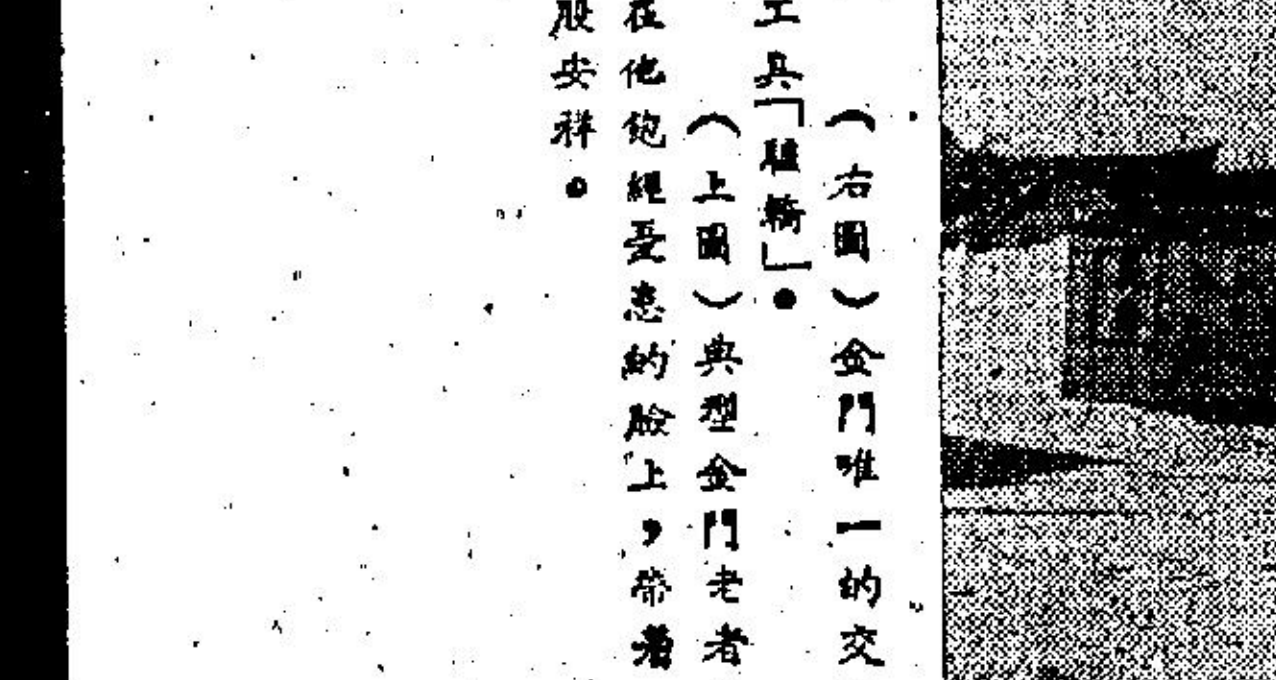 （右圖）金門唯一的交
工具「驢轎」。
（上圖）典型金門老者
在他飽經憂患的臉上，帶着
股安祥。